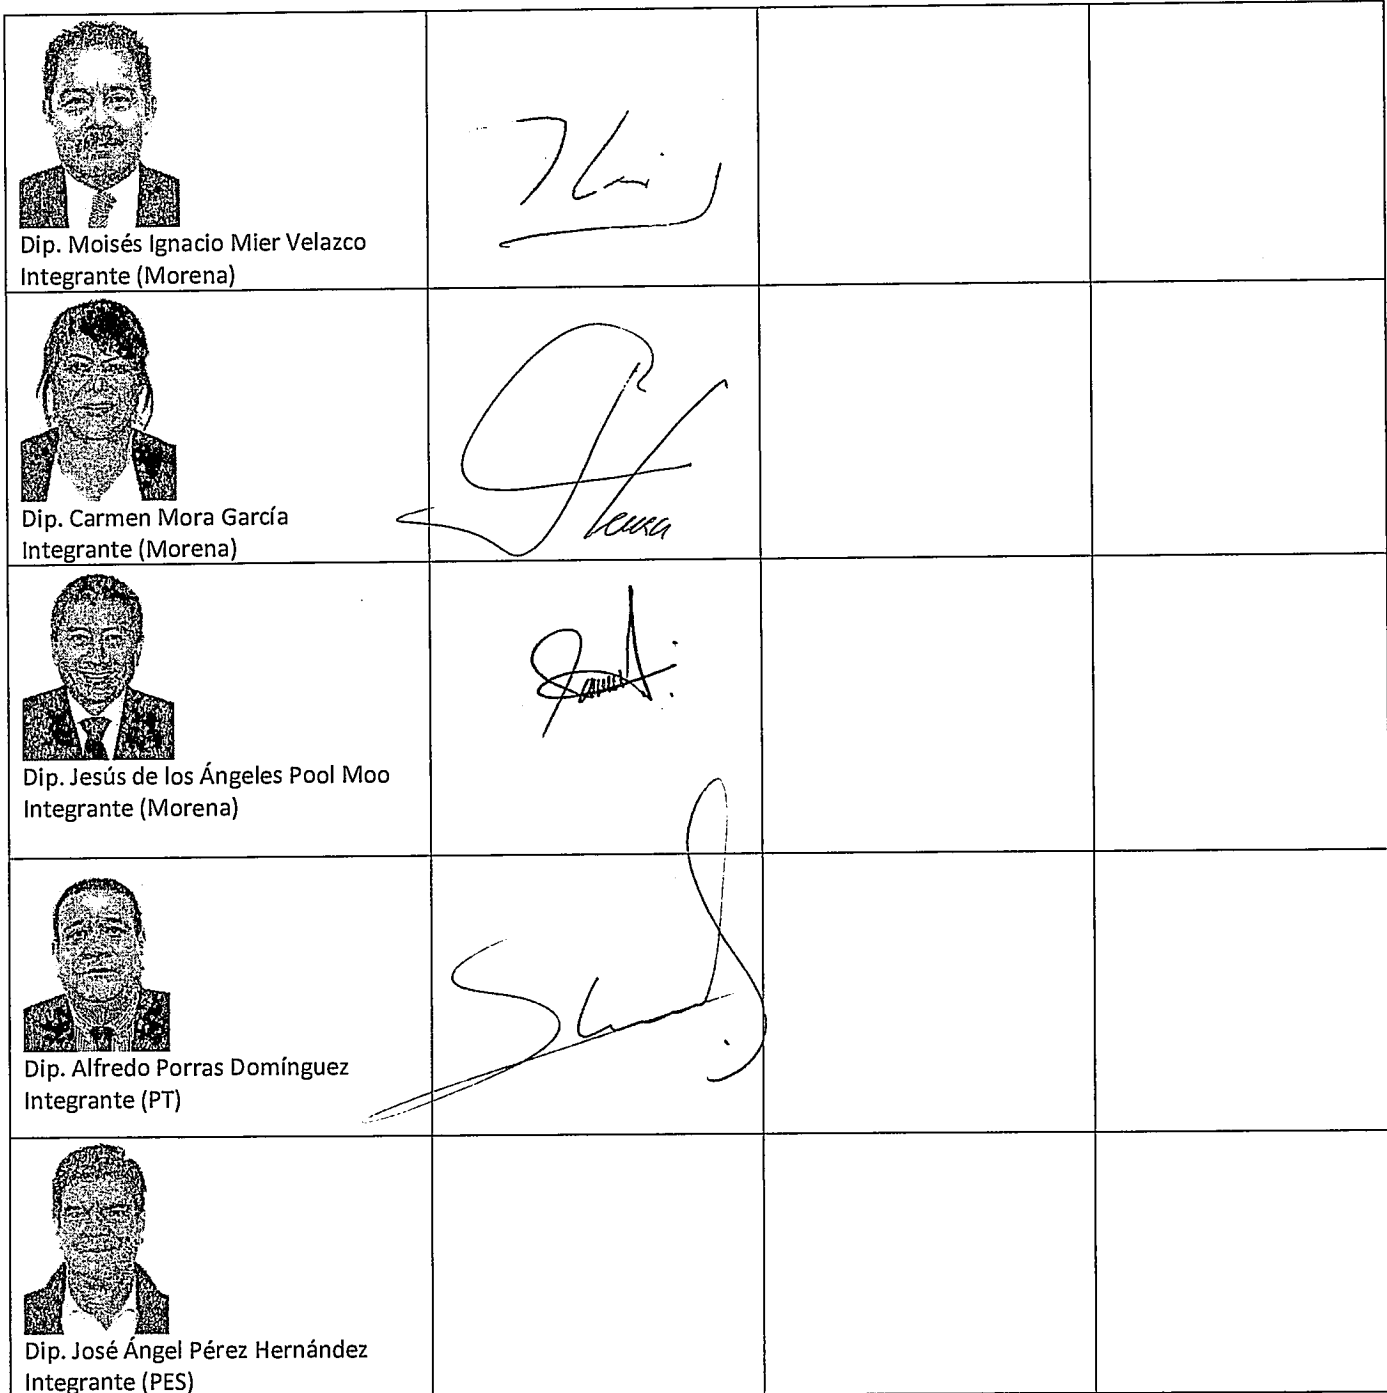 Dip. Moisés Ignacio Mier Velazco
Integrante (Morena)
Dip. Carmen Mora García
Integrante (Morena)
Dip. Jesús de los Ángeles Pool Moo
Integrante (Morena)
Dip. Alfredo Porras Domínguez
Integrante (PT)
Dip. José Ángel Pérez Hernández
Integrante (PES)